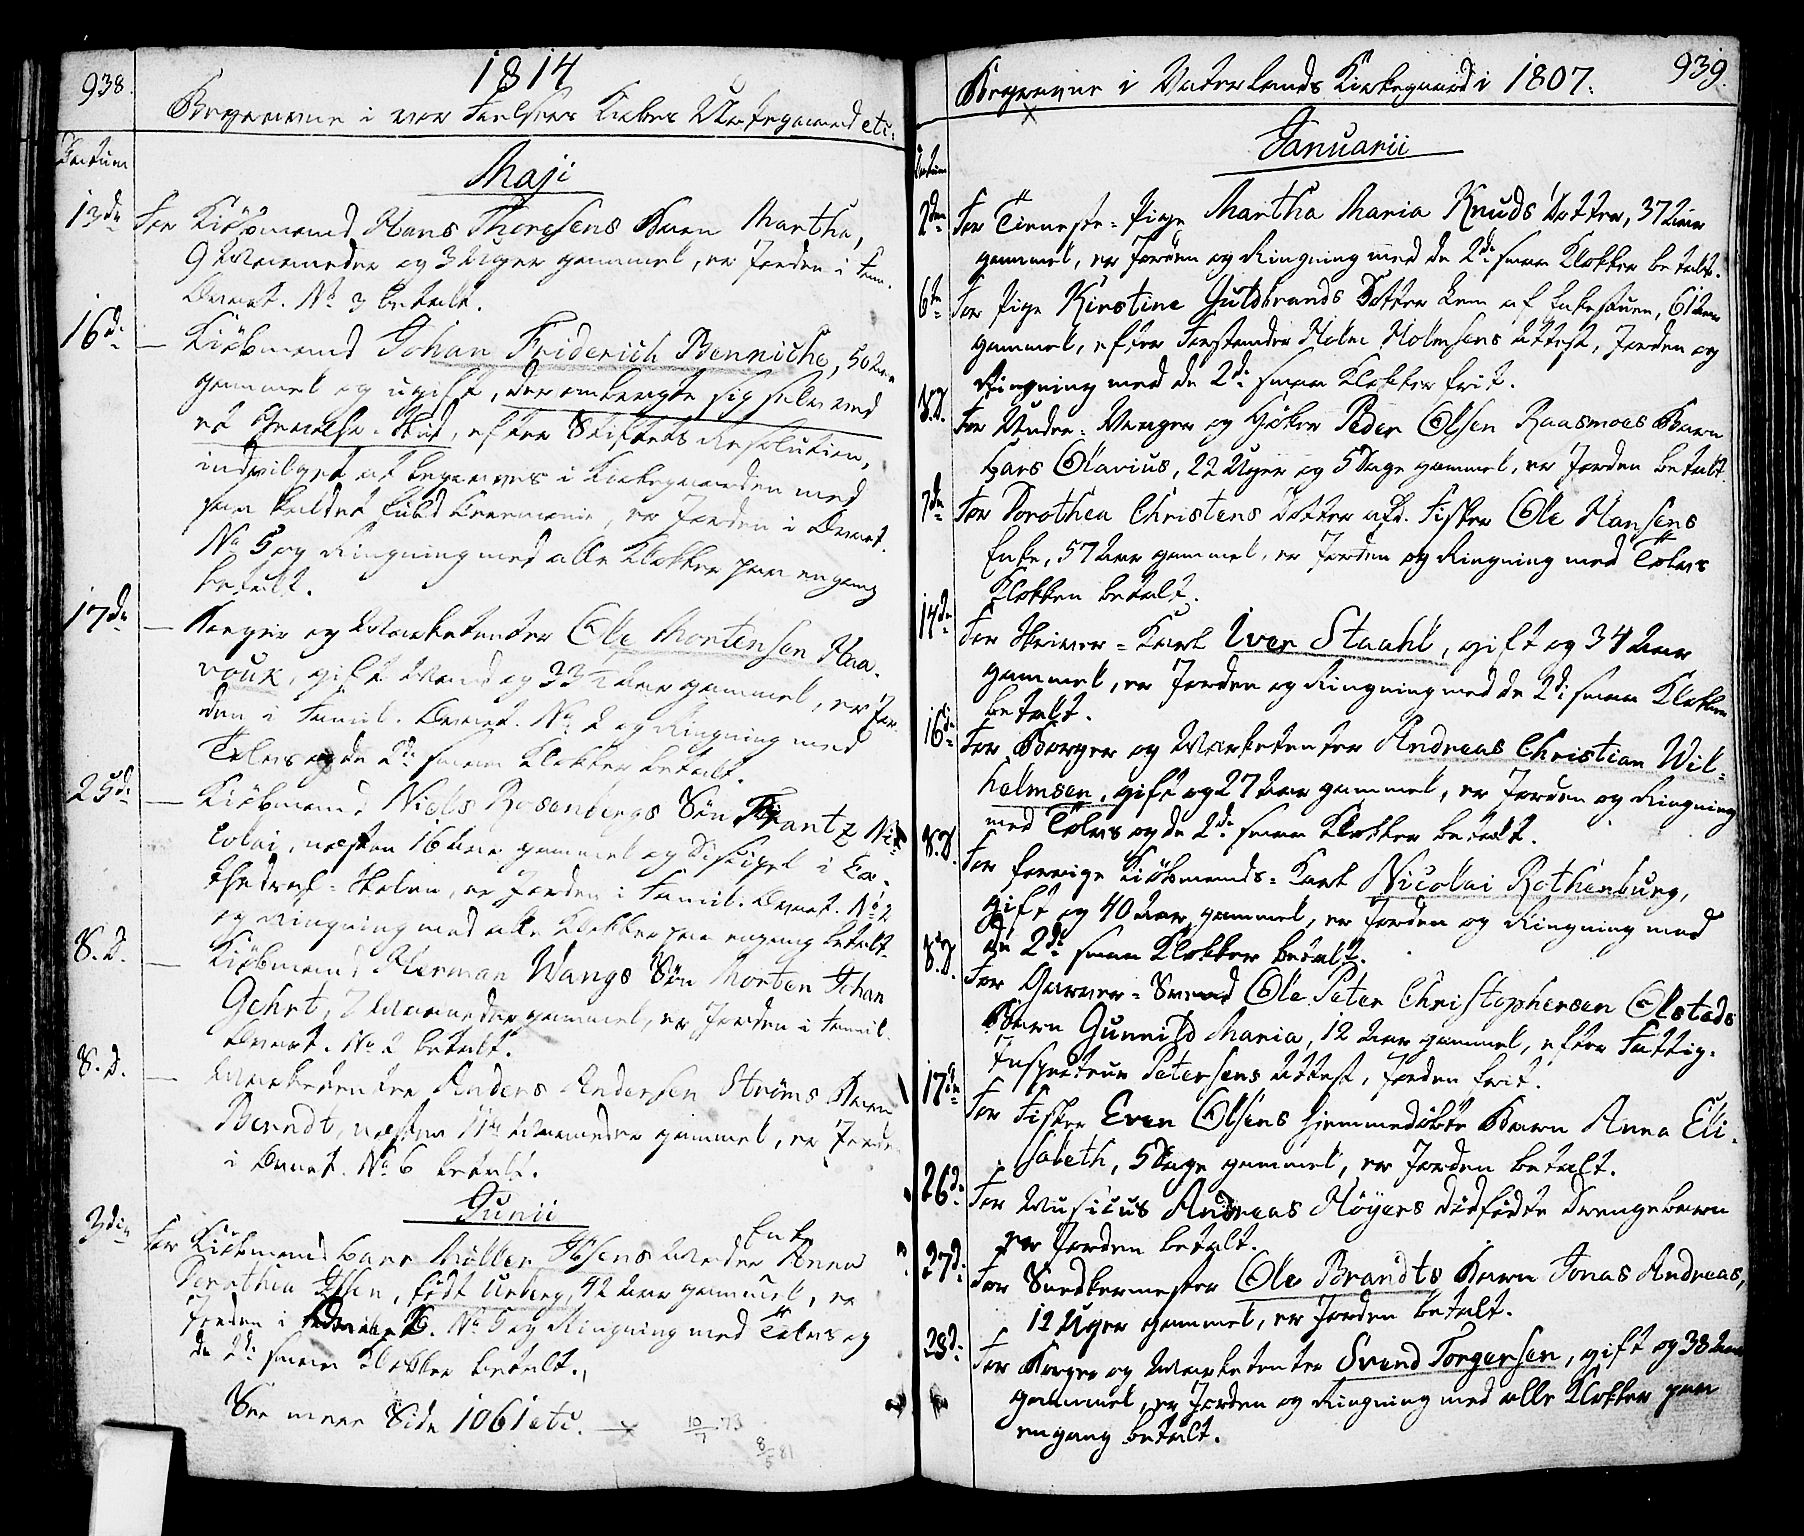 938.
1814
Begravne i vor Frelsers Kirkes Kirkegaard etc:
Datum
Maji
13de For Kiöbmand Hans Thoresens Barn Martha,
9 Maaneder og 3 Uger gammel, er Jorden i Fam.
Qvart. No 3 betalt.
16de — Kiöbmand Johan Friderich Benniche, 50 Aar
gammel og ugift, der ombragte sig selv ved
et Skud, efter Stiftets Resolution,
indvilget at begraves i Kirkegaarden med
saa kaldet Ceremonie, er Jorden i Qvart.
No 5 og Ringning med alle Klokker paa engang
betalt.
17de — Borger og Marketenter Ole Mortensen Haa-
vouk, gift Mand og 33 1/2 Aar gammel, er Jor-
den i Famil. Qvart. No 2 og Ringning med
Tolvs og de 2de smaa Klokker betalt.
25de — Kiöbmand Niels Rosenbergs Sön Frantz Ni-
colai, næsten 16 Aar gammel og Discipel i Ca-
thedral-Skolen, er Jorden i Famil. Qvart. No 2
og Ringning med alle Klokker paa engang betalt.
S. D. — Kiöbmand Herman Wangs Sön Morten Johan
Gehrt, 7 Maaneder gammel, er Jorden i Famil.
Qvart. No 2 betalt.
S. D. — Marketenter Anders Andersen Ströms Barn
Berndt, næsten Maaneder gammel, er Jorden
i Qvart. No 6 betalt.
Junii
3die For Kiöbmand Lars Möller Ibsens Moder Enke Anna
Dorothea Ibsen, födt 42 Aar gammel, er
Jorden i No 5 og Ringning med Tolvs og
de 2de smaa Klokker betalt.
See mere Side 1061 etc.
10/7 73
8/5 81
939.
Begravne i Vaterlands Kirkegaard i 1807.
Januarii
Datum
2den For Tieneste-Pige Martha Maria Knuds Dotter, 37 Aar
gammel, er Jorden og Ringning med de 2de smaa Klokker betalt.
6te For Pige Kirstine Guldbrands Dotter Lem af Enkestuen, 61 Aar
gammel, efter Forstander Holm Holmsens Attest, Jorden og
Ringning med de 2de smaa Klokker frit.
S. D. For Under-Vægter og Höker Peder Olsen Raasmoes Barn
Lars Olavius, 22 Uger og 5 Dage gammel, er Jorden betalt.
7de For Dorothea Christens Dotter afd. Fisker Ole Hansens
Enke, 57 Aar gammel, er Jorden og Ringning med Tolvs
Klokken betalt.
14de For Skriver-Karl Iver Staahl, gift og 34 Aar
gammel, er Jorden og Ringning med de 2de smaa Klokker
betalt.
16de For Borger og Marketenter Andreas Christian Wil-
helmsen, gift og 27 Aar gammel, er Jorden og Ringning
med Tolvs og de 2de smaa Klokker betalt.
S. D. For forrige Kiöbmands-Karl Nicolai Rothenburg,
gift og 40 Aar gammel, er Jorden og Ringning med
de 2de smaa Klokker betalt.
S. D. For Garver-Svend Ole Peter Christophersen Olstads
Barn Gunnild Maria, 12 Aar gammel, efter Fattig-
Inspecteur Petersens Attest, Jorden frit.
17de For Fisker Even Olsens hjemmedöbte Barn Anna Eli-
sabeth, 5 Dage gammel, er Jorden betalt.
26de For Musicus Andreas Höyers dödfödte Drengebarn
er Jorden betalt.
27de For Snedkermester Ole Brandts Barn Jonas Andreas,
12 Uger gammel, er Jorden betalt.
28de For Borger og Marketenter Svend Torgersen, gift og 38 Aar
gammel, er Jorden og Ringning med alle Klokker paa
engang betalt.